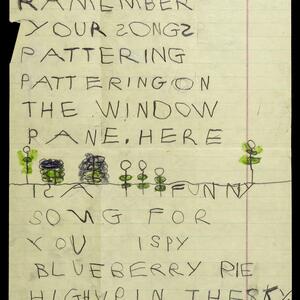 RAMEMBER
YOUR SONGS
PATTERING
PATTERING ON
THE WINDOW
PANE. HERE
IS A FUNNY
SONG FOR
YOU I SPY
BLUEBERRY PIE
HIGH UP IN THE SKY